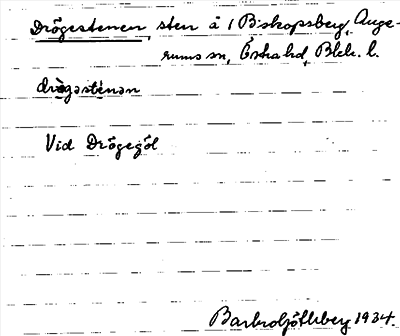 Drögestenen, sten å 1 Biskopsberg, Auge-
rums sn, Östra hd, Blek. l.
drö̀gəsténən
Vid Drögegöl
Barbro Götlsberg 1934.